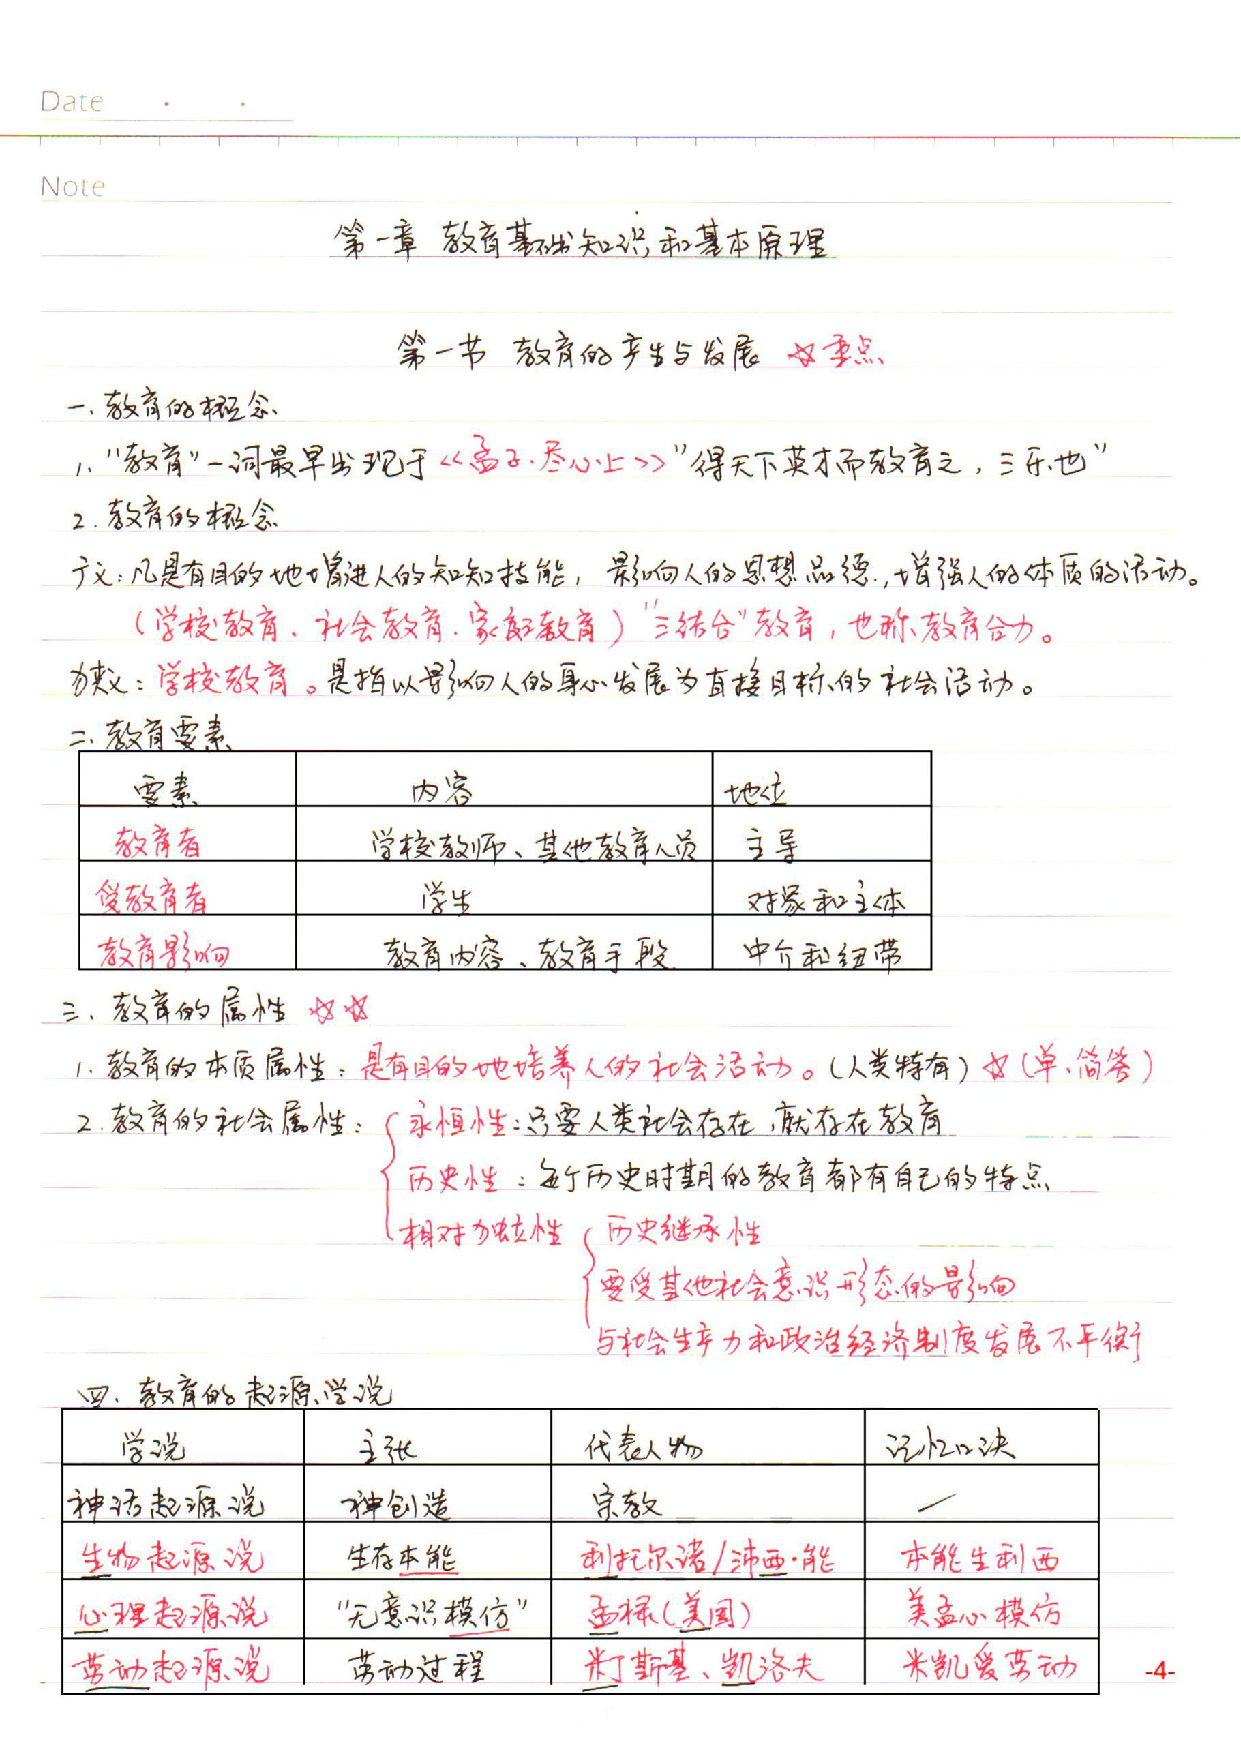 Date
Note
第一章 教育基础知识和基本原理
第一节 教育的产生与发展 ☆重点
一.教育的概念
1."教育"一词最早出现于《孟子·尽心上》"得天下英才而教育之，三乐也"
2.教育的概念
广义：凡是有目的地增进人的知知技能，影响人的思想品德，增强人的体质的活动。
（学校教育、社会教育.家庭教育）"三结合"教育，也称教育合力。
狭义：学校教育。是指以影响人的身心发展为直接目标的社会活动。
二.教育要素
要素 内容 地位
教育者 学校教师、其他教育人员 主导
受教育者 学生 对象和主体
教育影响 教育内容、教育手段 中介和纽带
三.教育的属性 ☆☆
1.教育的本质属性：是有目的地培养人的社会活动。（人类特有）☆（单.简答）
2.教育的社会属性：永恒性：只要人类社会存在，就存在教育
历史性：每个历史时期的教育都有自己的特点
相对独立性 历史继承性
要受其他社会意识形态的影响
与社会生产力和政治经济制度发展不平衡
四.教育的起源学说
学说 主张 代表人物 记忆口决
神话起源说 神创造 宗教 —
生物起源说 生存本能 利托尔诺/沛西·能 本能生利西
心理起源说 "无意识模仿" 孟禄（美国） 美孟心模仿
劳动起源说 劳动过程 米丁斯基、凯洛夫 米凯爱劳动
-4-